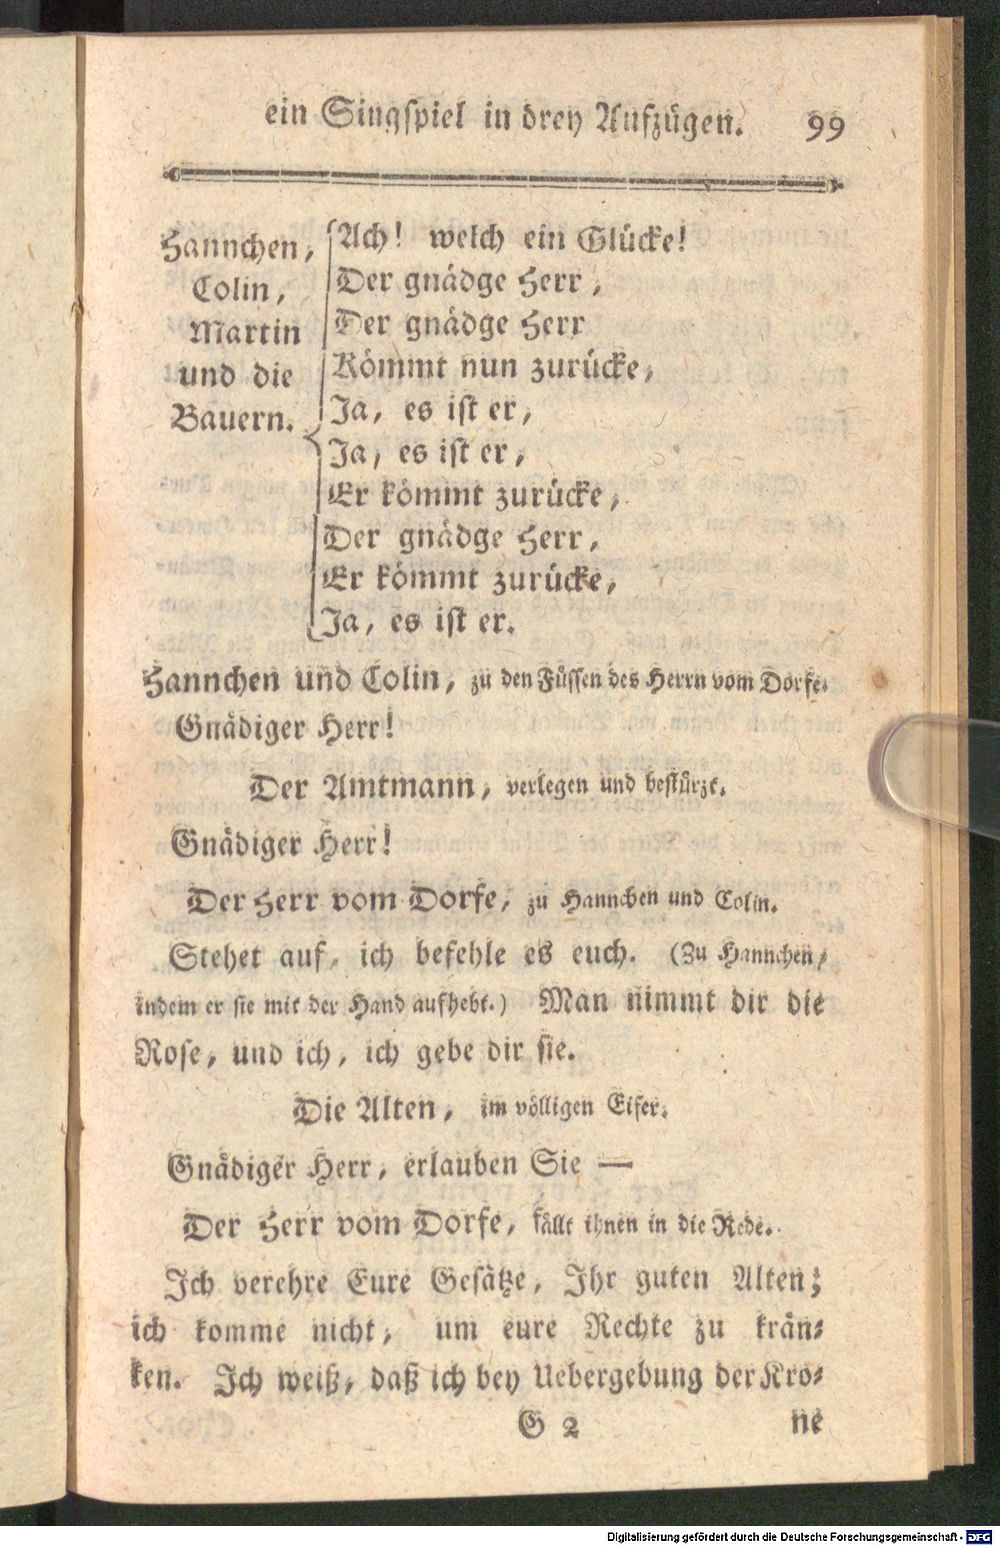 ein Singspiel in drey Aufzügen. 99
Hannchen,
Colin,
Martin
und die
Bauern.
Ach! welch ein Glücke!
Der gnädge Herr,
Der gnädge Herr
Kömmt nun zurücke,
Ja, es ist er,
Ja, es ist er,
Er kömmt zurücke,
Der gnädge Herr,
Er kömmt zurücke,
Ja, es ist er.
Hannchen und Colin, zu den Füssen des Herrn vom Dorfe.
Gnädiger Herr!
Der Amtmann, verlegen und bestürzt.
Gnädiger Herr!
Der Herr vom Dorfe, zu Hannchen und Colin.
Stehet auf, ich befehle es euch. (Zu Hannchen,
indem er sie mit der Hand aufhebt.) Man nimmt dir die
Rose, und ich, ich gebe dir sie.
Die Alten, im völligen Eifer.
Gnädiger Herr, erlauben Sie —
Der Herr vom Dorfe, fällt ihnen in die Rede.
Ich verehre Eure Gesätze, Ihr guten Alten;
ich komme nicht, um eure Rechte zu krän-
ken. Ich weiß, daß ich bey Uebergebung der Kro-
G 2 ne
Digitalisierung gefördert durch die Deutsche Forschungsgemeinschaft - DFG